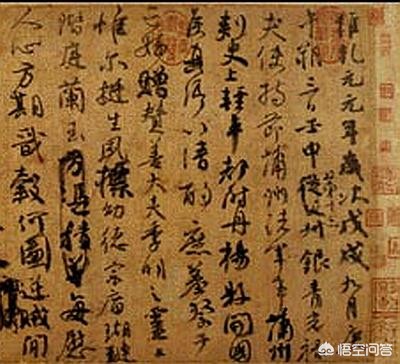 維乾元元年歲次戊戌九月庚
午朔三日壬申第十三叔銀青光祿
夫使持節蒲州諸軍事蒲州
刺史上輕車都尉丹楊縣開國
侯真卿以清酌庶羞祭于
亡姪贈贊善大夫季明之靈
惟爾挺生夙標幼德宗廟瑚璉
階庭蘭玉方憑積善每慰
人心方期戩穀何圖逆賊間
悟空问答